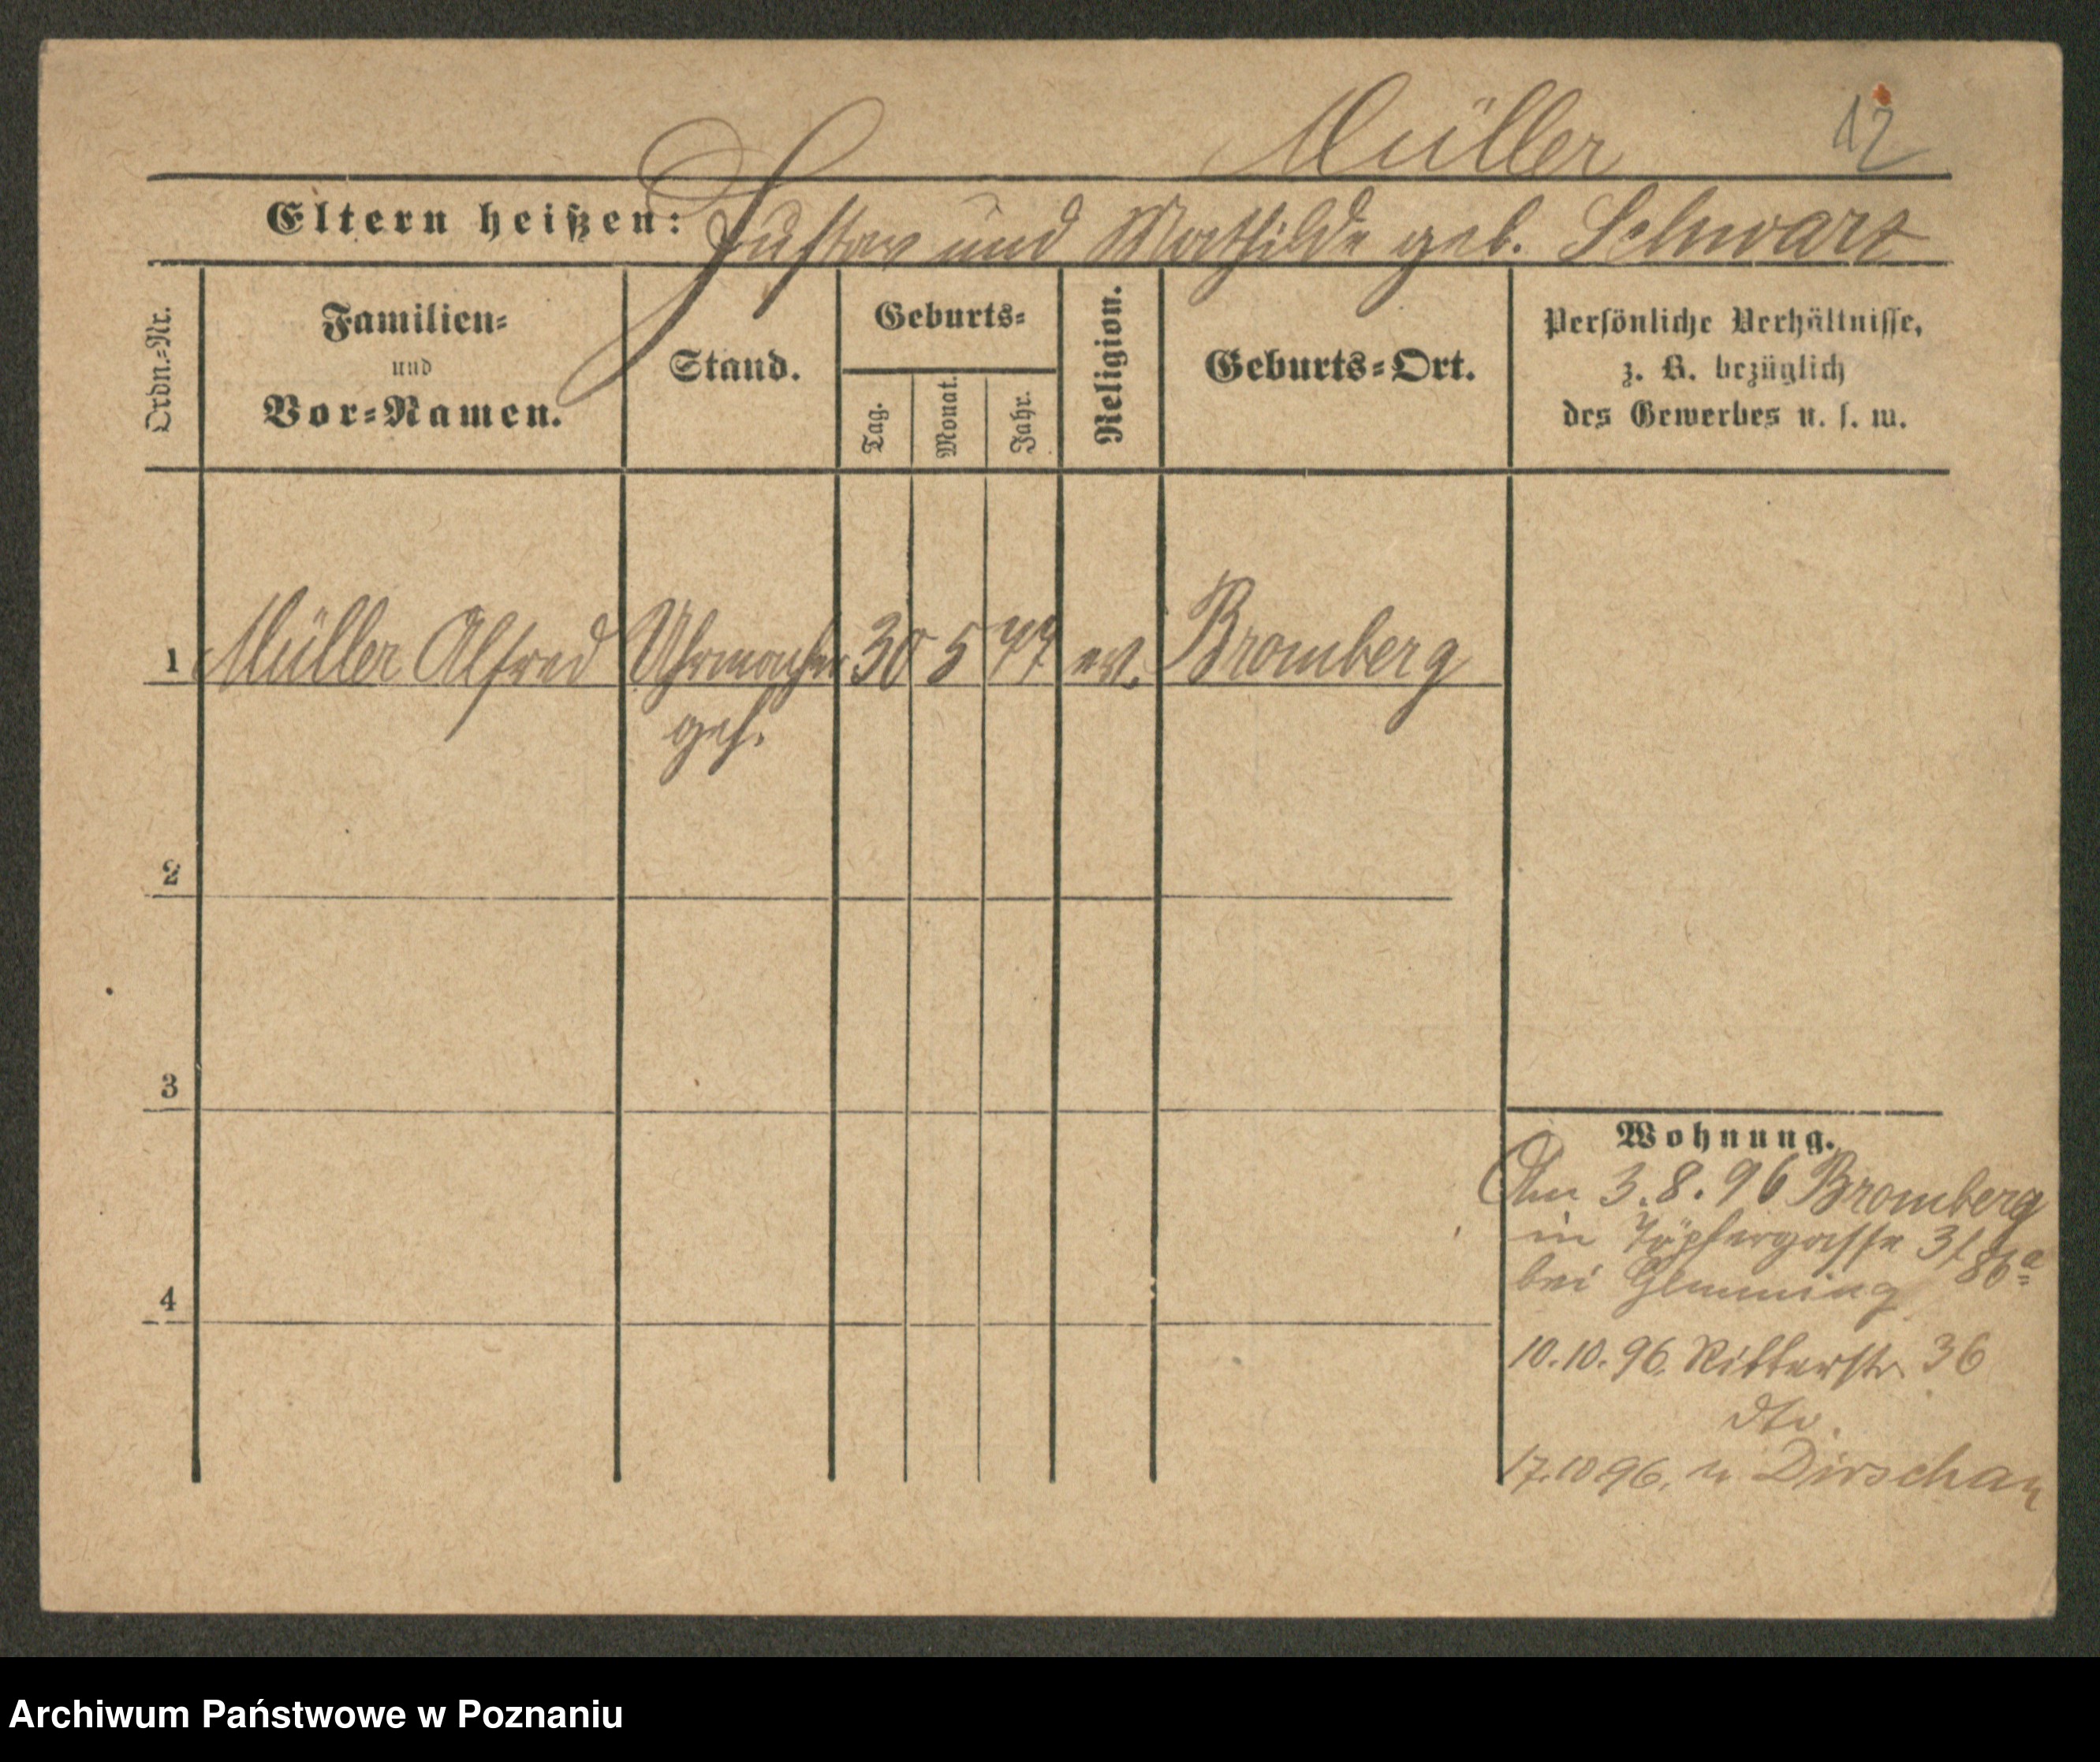 Müller 12
Eltern heißen: Gustav und Mathilde geb. Schwarz
Ordn.=Nr. Familien= und Vor=Namen. Stand. Geburts= Tag. Monat. Jahr. Religion. Geburts=Ort. Persönliche Verhältnisse, z. B. bezüglich des Gewerbes u. s. w.
1 Müller Alfred Uhrmacher 30 5 77 ev. Bromberg
geh.
2
3
Wohnung.
Am 3.8.96 Bromberg
in Töpfergasse 3/
bei
4
10.10.96. Ritterstr. 36
dto.
17.10 96. n Dirschau
Archiwum Państwowe w Poznaniu